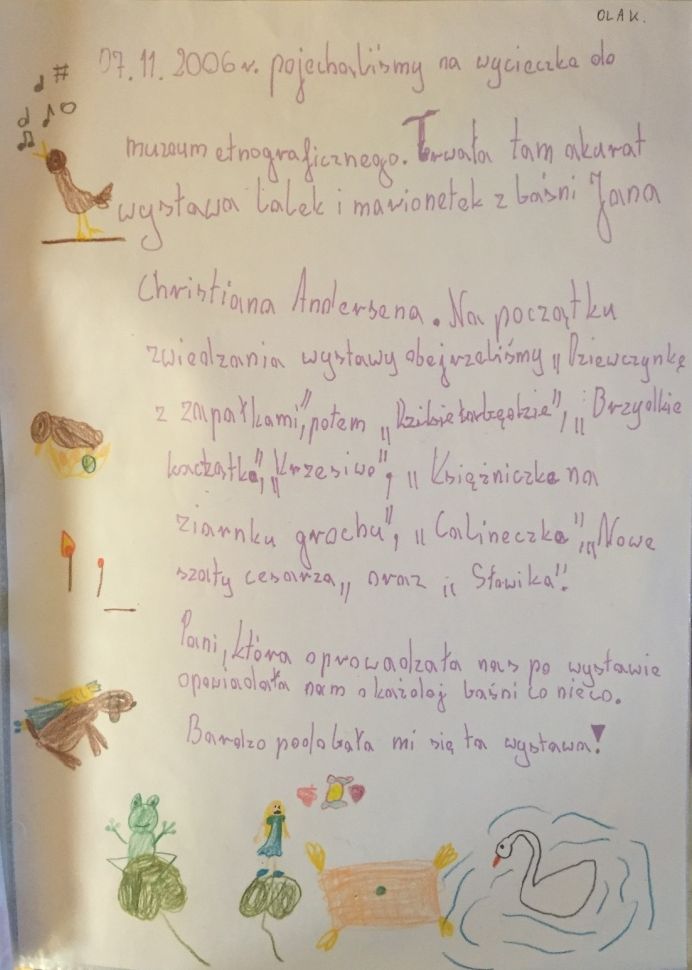 OLA K.
07.11.2006r. pojechaliśmy na wycieczkę do
muzeum etnograficznego. Trwała tam akurat
wystawa lalek i marionetek z baśni Jana
Christiana Andersena. Na początku
zwiedzania wystawy obejrzeliśmy „Dziewczynkę
z zapałkami”, potem „Dzikie łabędzie”, „Brzydkie
kaczątko”, „Krzesiwo”, „Księżniczka na
ziarnku grochu”, „Calineczka”, „Nowe
szaty cesarza„ oraz „Słowika”.
Pani, która oprowadzała nas po wystawie
opowiadała nam o każdej baśni co nieco.
Bardzo podobała mi się ta wystawa!